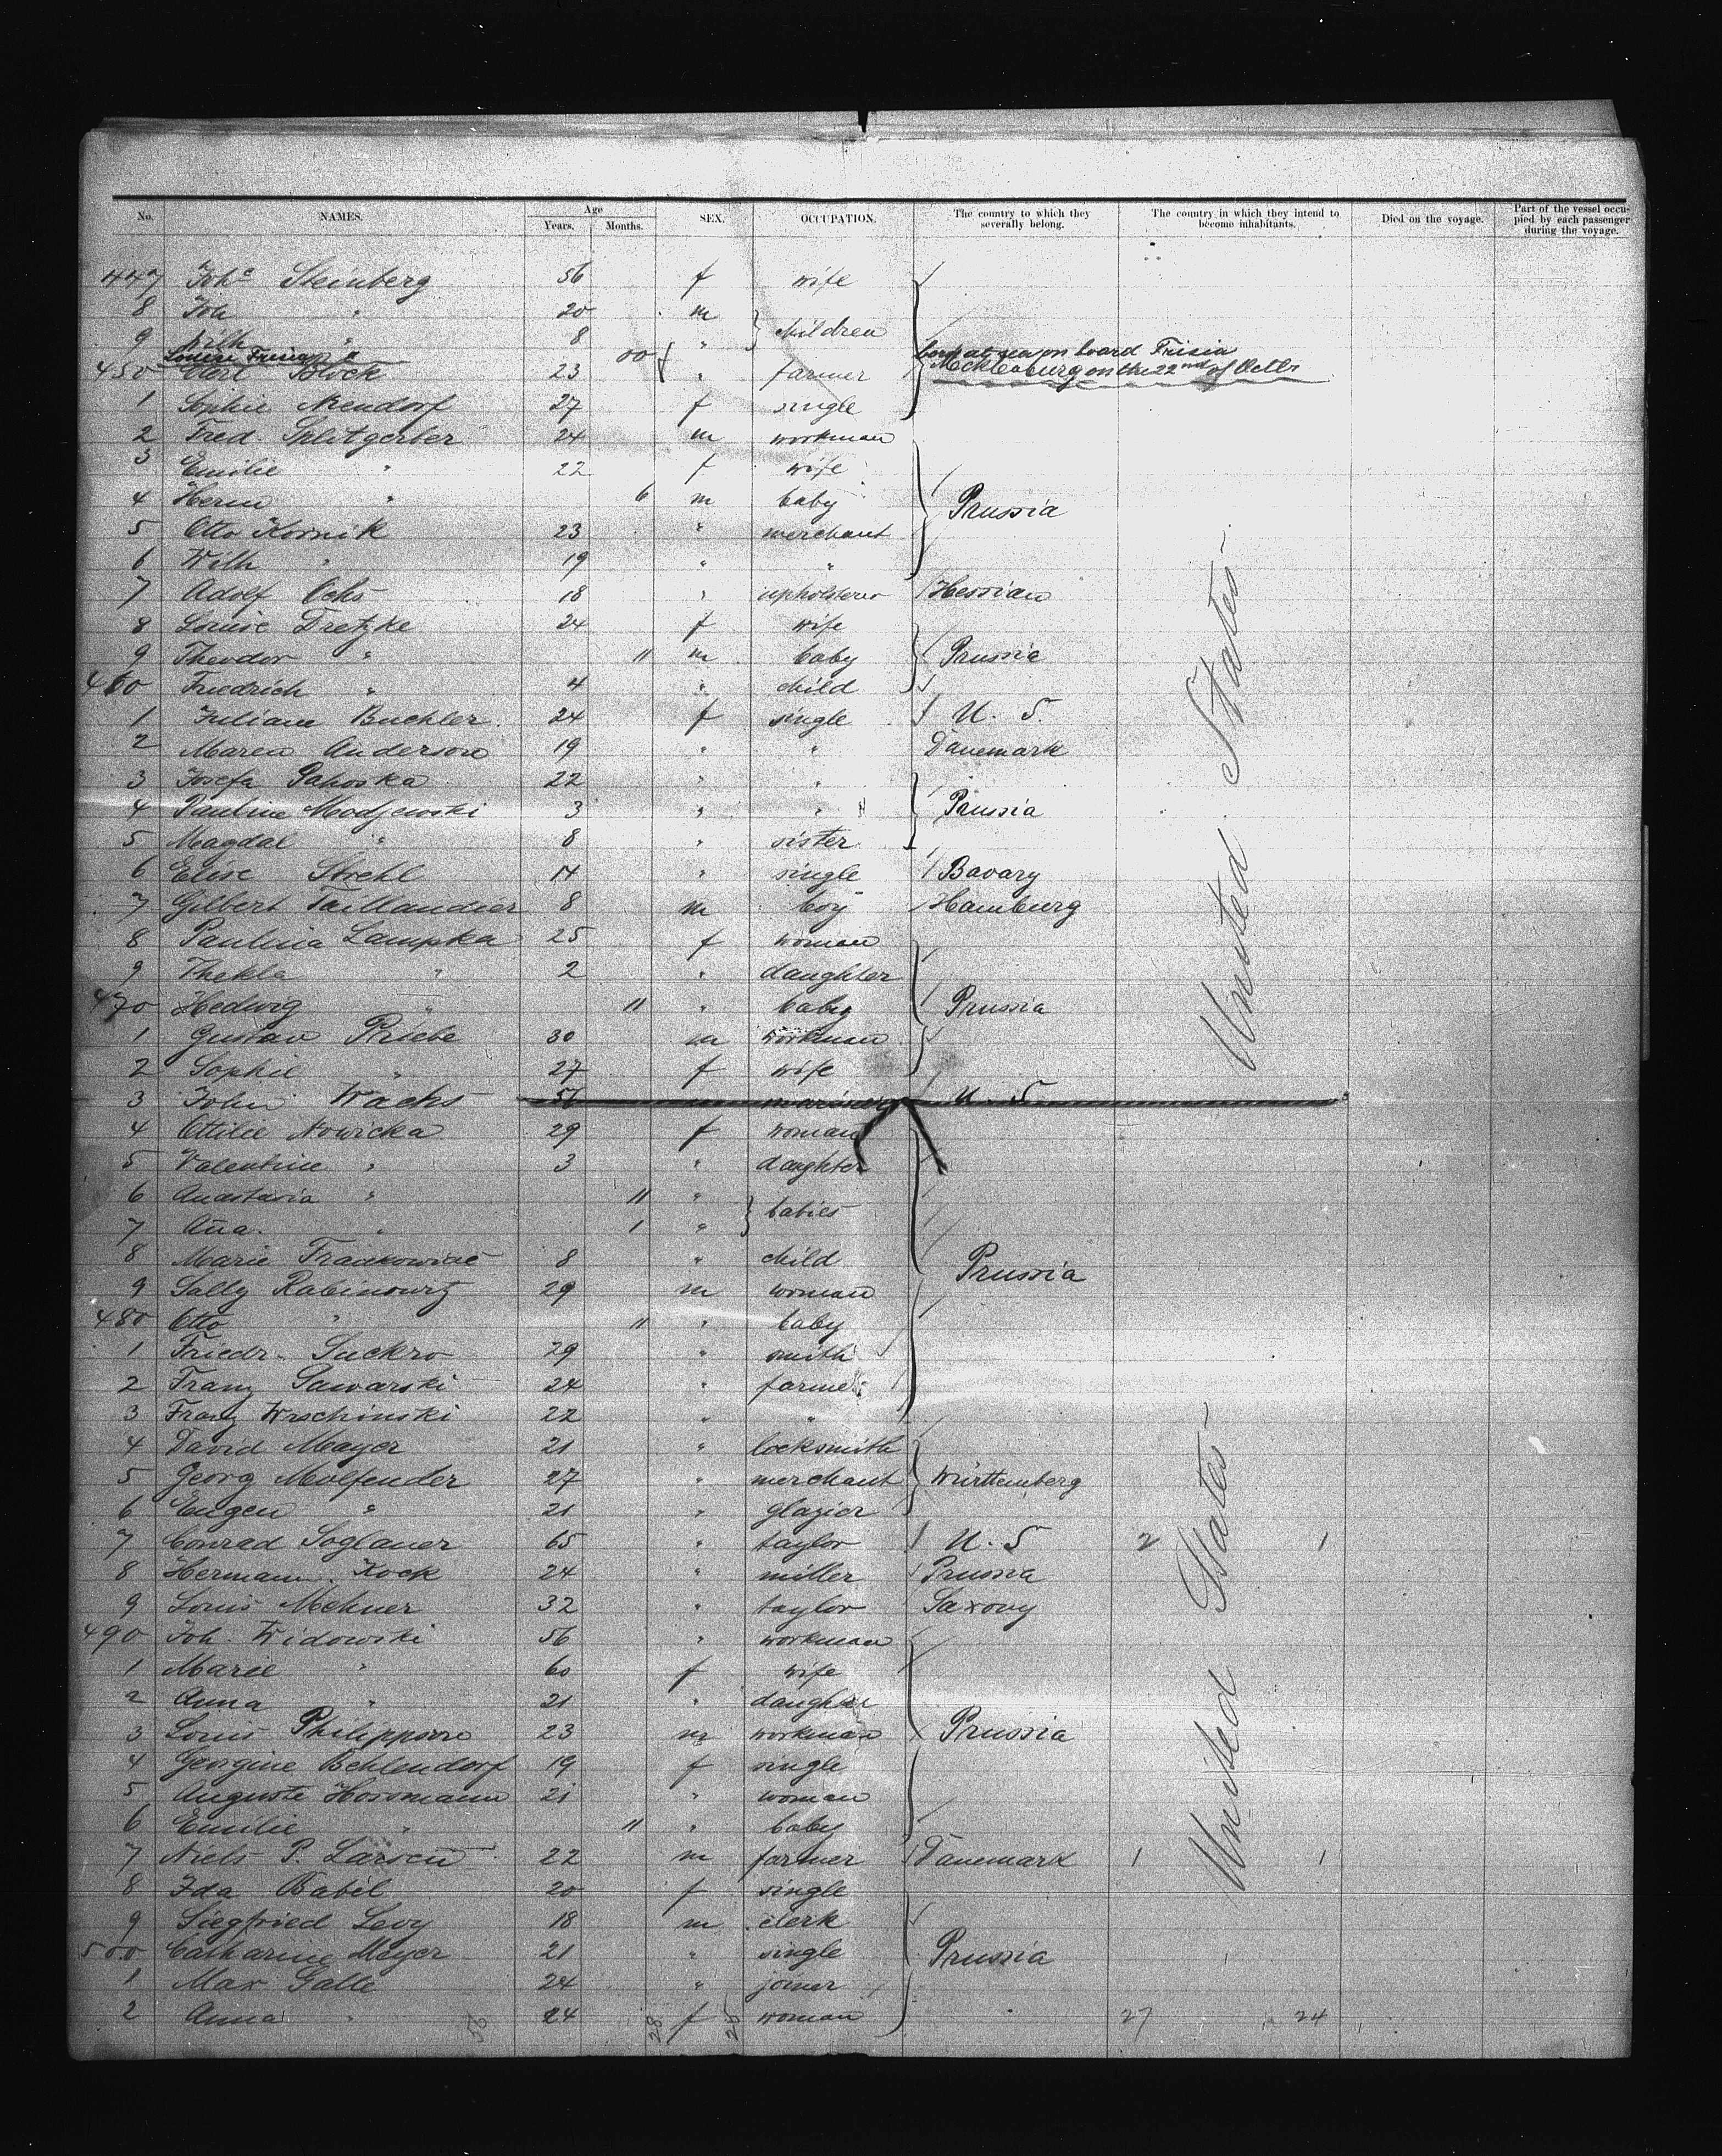 No. NAMES. Age Years. Months. SEX. OCCUPATION. The country to which they severally belong. The country in which they intend to become inhabitants. Died on the voyage. Part of the vessel occupied by each passenger during the voyage.
447 Joh.e Steinberg 56 f wife
8 Joh " 20 m
9 Wilh " 8 " } children
Louise Frisia " 00 born at sea on board Frisia
450 Carl Block 23 " farmer Mecklenburg on the 22nd of Octbr
1 Sophie Neendorf 27 f single
2 Fred. Splitgerber 24 m workman
3 Emilie " 22 f wife
4 Herm " 6 m baby Prussia
5 Otto Kornik 23 " merchant
6 Wilh " 19 " "
7 Adolf Ochs 18 " upholsterer Hessian
8 Louise Dretzke 24 f wife
9 Theodor " 11 m baby Prussia
460 Friedrich " 4 " child
1 Juliane Buchler 24 f single U. S.
2 Maren Anderson 19 " " Danemark
3 Josefa Pahoska 22 " "
4 Pauline Modjewski 3 " " Prussia
5 Magdal " 8 " sister
6 Elise Strehl 14 " single Bavary
7 Gilbert Taillandier 8 m boy Hamburg
8 Paulina Lampka 25 f woman
9 Thekla " 2 " daughter
470 Hedwig " 11 " baby Prussia
1 Gustav Priebe 30 m workman
2 Sophie " 27 f wife
3 John Wachs 56 U. S
4 Ottilie Nowicka 29 f woman
5 Valentine " 3 " daughter
6 Anastasia " 11 "
7 Ana. " 1 " } babies
8 Marie 8 " child Prussia
9 Sally Rabinowitz 29 m woman
480 Otto " 11 " baby
1 Friedr. Suckro 29 " smith
2 Franz Sawarski 24 " farmer
3 Franz Wrschinski 22 " "
4 David Mayer 21 " locksmith
5 Georg Molfender 27 " merchant Württemberg
6 Eugen " 21 " glazier
7 Conrad Soglauer 65 " taylor U. S 2 1
8 Hermann Kock 24 " miller Prussia
9 Louis Mehner 32 " taylor Saxony
490 Joh. Widowski 56 " workman
1 Marie " 60 f wife
2 Anna " 21 " daughter
3 Louis Philippson 23 m workman Prussia
4 Georgine Behlendorf 19 f single
5 Auguste Horomann 21 " woman
6 Emilie " 11 " baby
7 Niels P. Larsen 22 m farmer Danemark 1 1
8 Ida Babel 20 f single
9 Siegfried Levy 18 m clerk
500 Catharine Meyer 21 " single Prussia
1 Max Galle 24 " joiner
2 Anna " 24 f woman 27 24
56 28 28
United States
United States